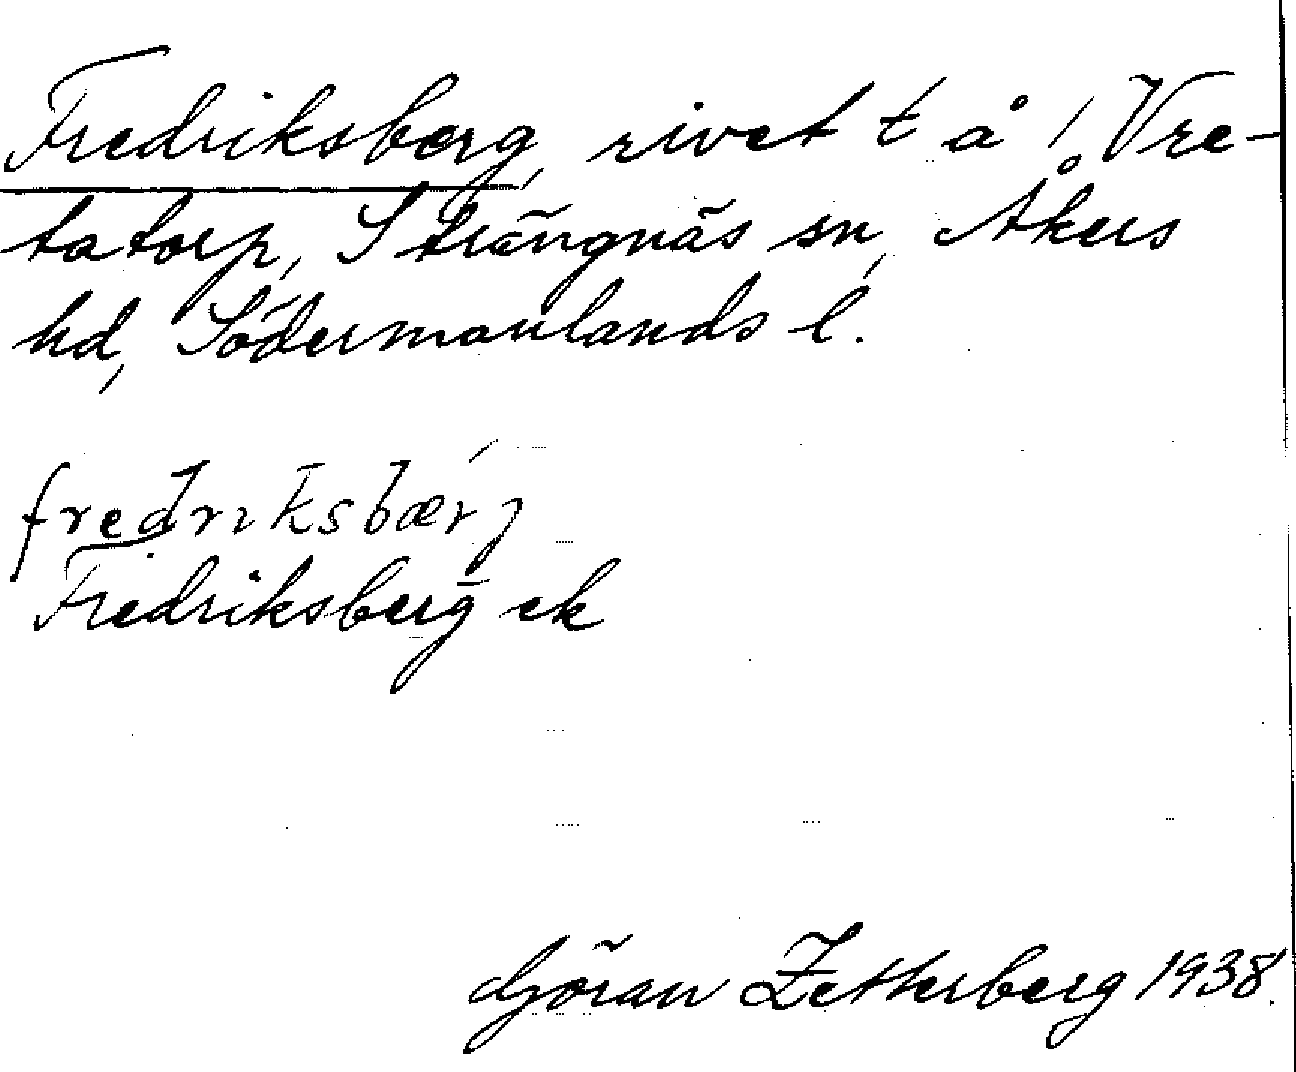 Fredriksberg, rivet t å 1 Vre-
tatorp, Strängnäs sn, Åkers
hd, Södermanlands l.
fredriksbærj
Fredriksberg ek
Göran Zetterberg 1938.